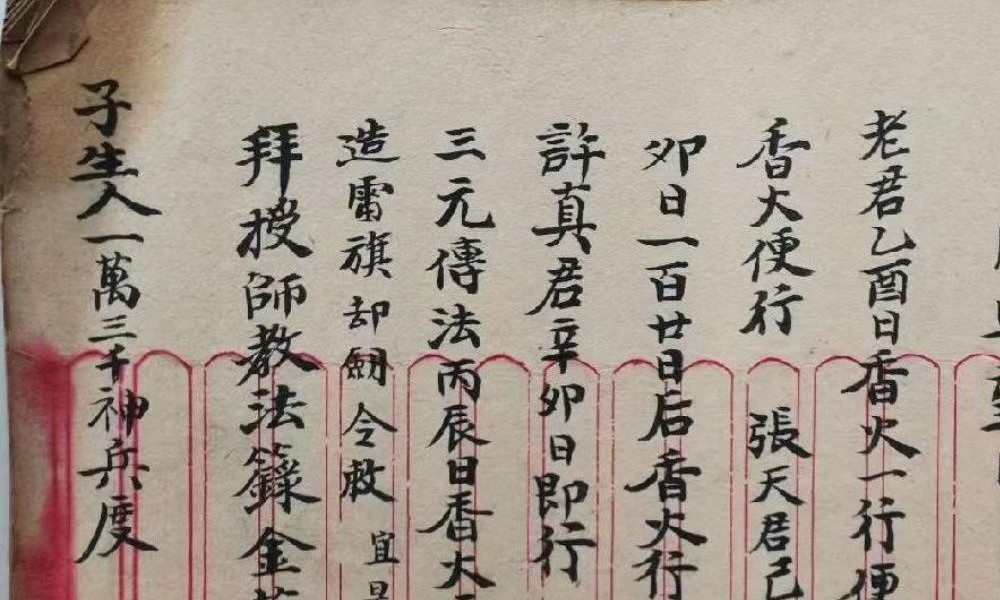 老君乙酉日香火一行便
香火便行 張天君己
卯日一百廿日后香火行
許真君辛卯日即行
三元傳法丙辰日香火
造雷旗却劒令敕 宜
拜授師教法籙金
子生人一萬三千神兵度